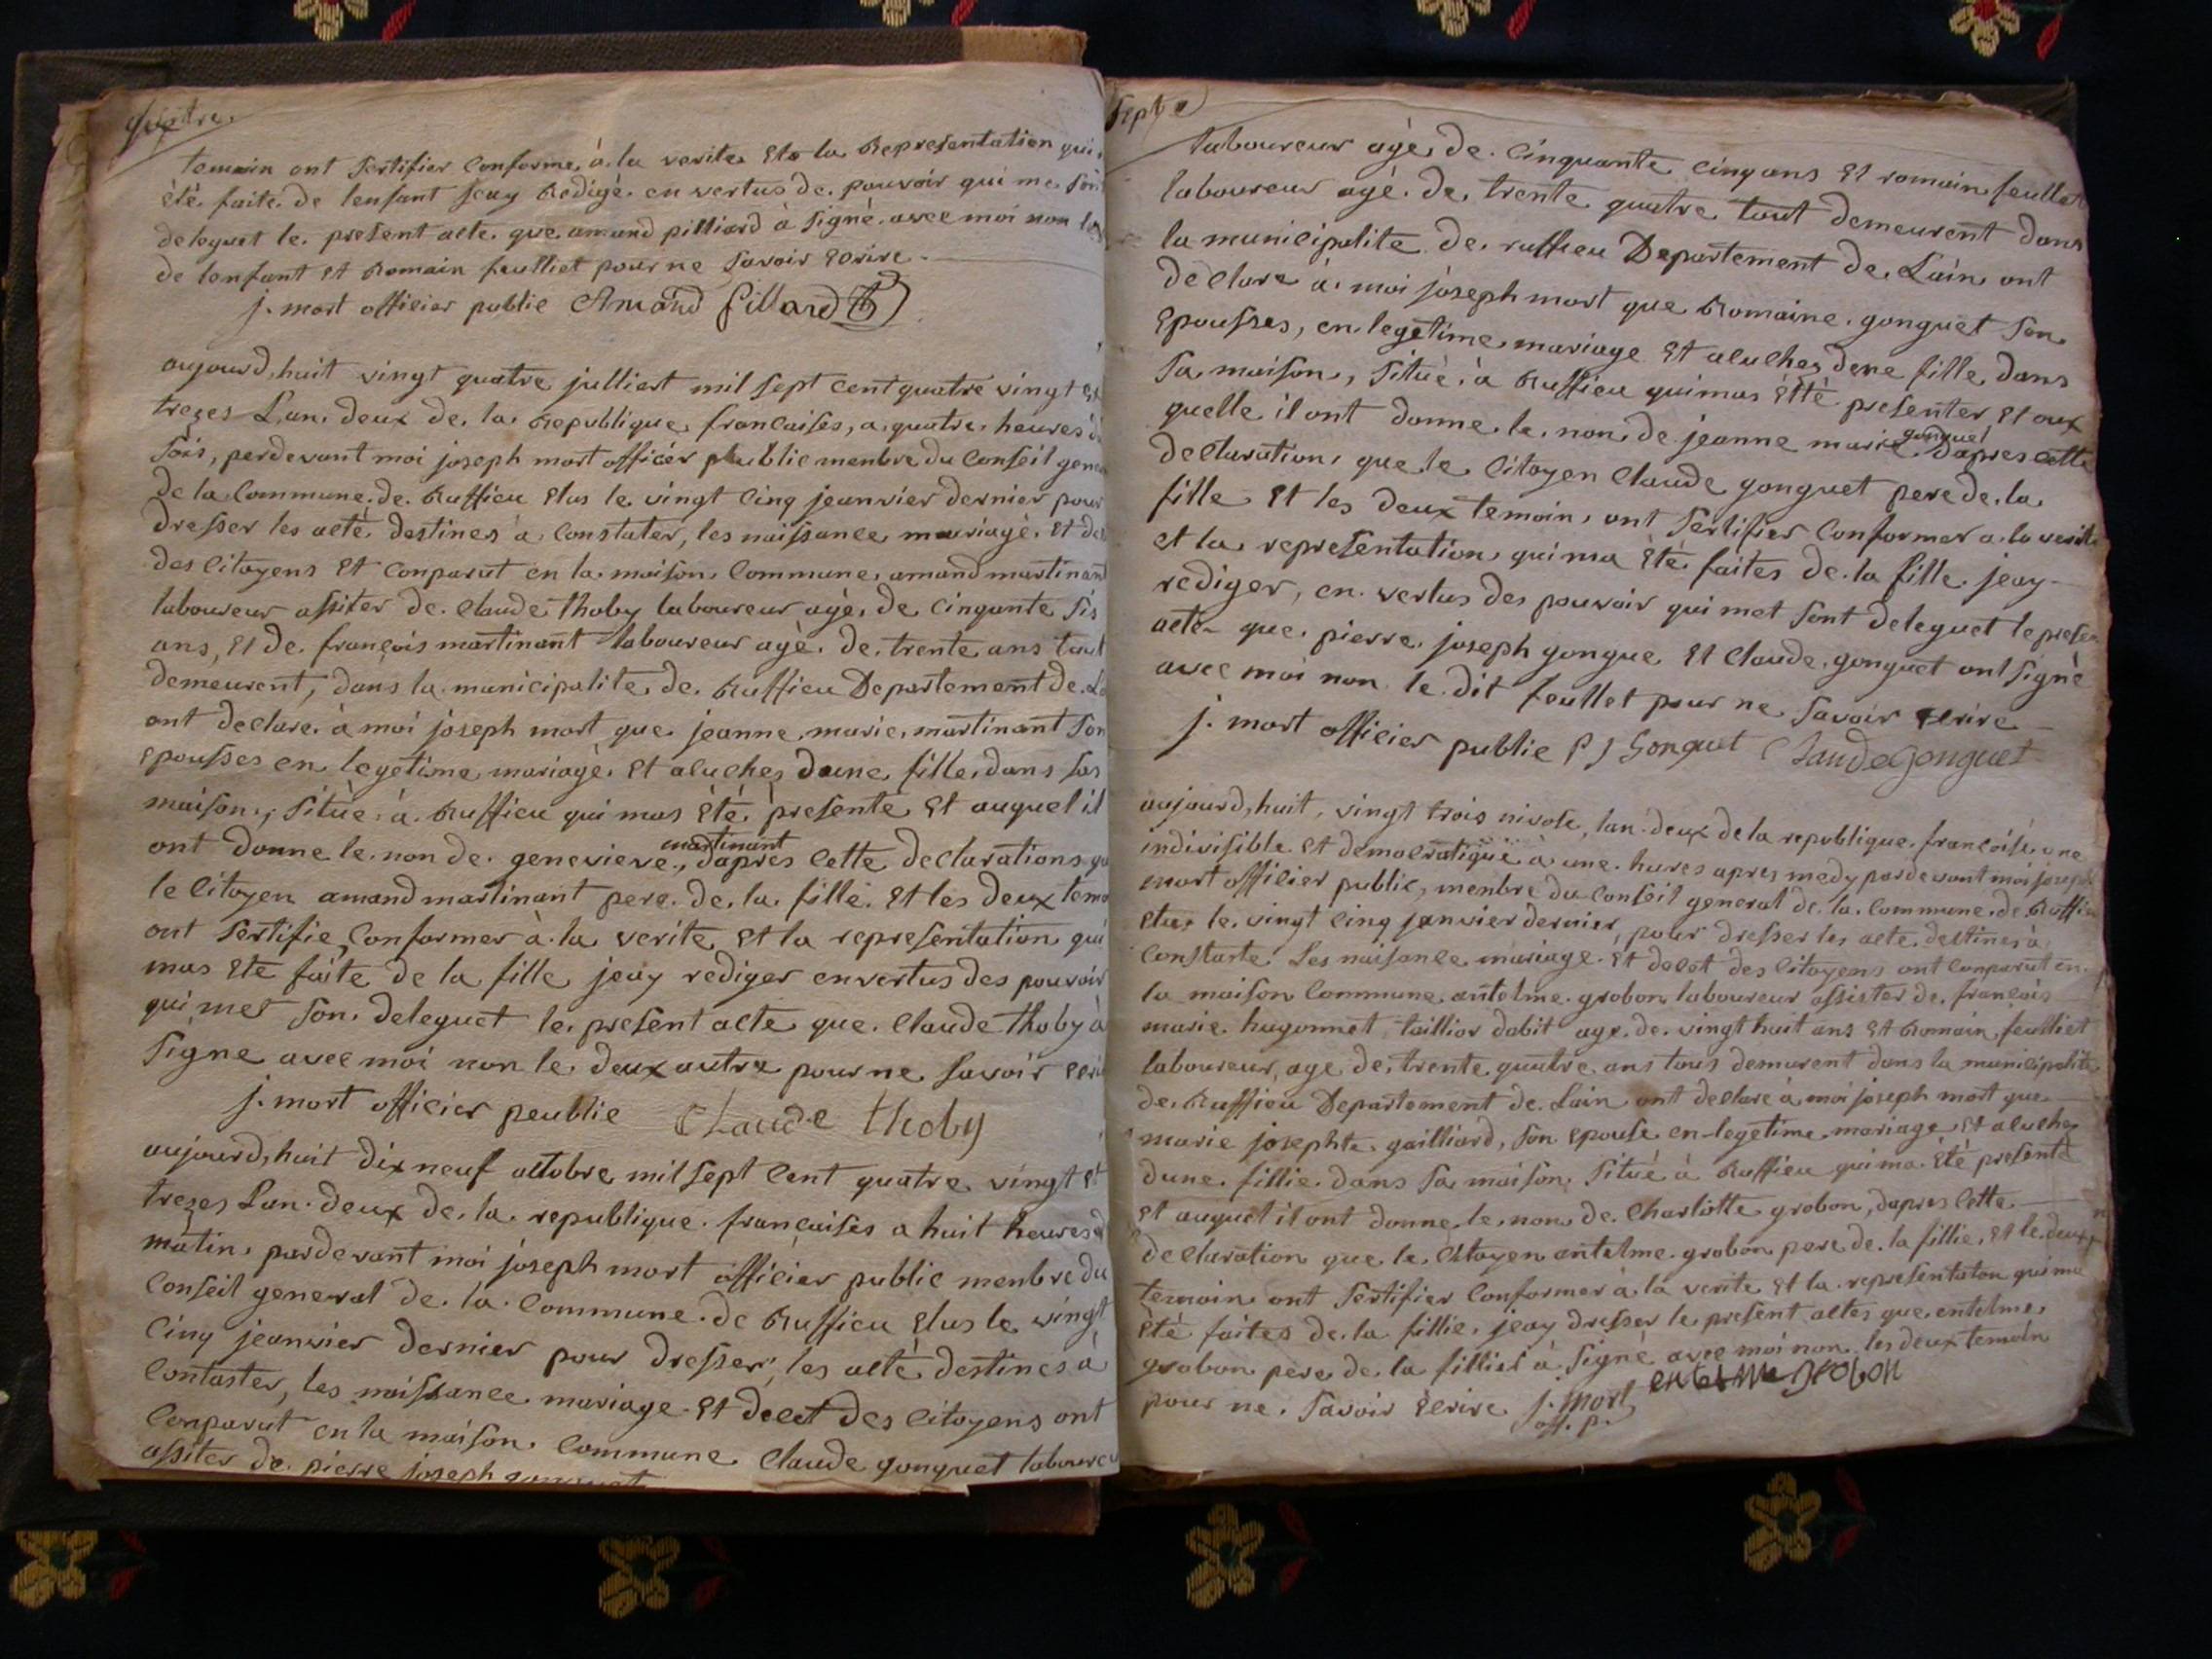 temoin ont sertifier conforme à la verite et la Representation qui
èté faite de lenfant jeay Redigè en vertus de pouvoir qui me sont
deleguet le present acte que amand pilliard à signè avec moi non
de lenfant et Romain feulliet pour ne savoir ecrire
j. mort officier public Amand Pillard
aujourd,huit vingt quatre julliert mil sept cent quatre vingt et
trezes Lan deux de la Republique francaises, a quatre heures du
soir, perdevant moi joseph mort officér peublic menbre du Conseil gene
de la Commune de Ruffieu Elus le vingt cinq jeanvier dernier pour
dresser les actè destines à Constater, les naissance mauriagè et de
des citoyens et conparut en la maison commune amand martinant
laboureur assiter de claude thoby laboureur agè de cinqante sis
ans, et de françois martinant laboureur agè de trente ans tout
demeurent, dans la municipalite de Ruffieu Departement de
ont declare à moi joseph mort que jeanne marie martinant son
epousses en legetime mariagè et aluches daune fille dans sas
maison, situè à Ruffieu qui mas èté presente et auquel il
martinant
ont donne le non de genevieve, dapres cette declarations
le citoyen amand martinant pere de la fille et les deux temo
ont sertifie conformer à la verite et la representation qui
mas ete faite de la fille jeay rediger envertus des pouvoir
qui met son deleguet le present acte que claude thoby à
signe avec moi non le deux autre pour ne savoir ecri
j. mort officier peublic Claude thoby
aujourd,huit dix neuf actobre mil sept cent quatre vingt et
trezes Lan deux de la republique francaises a huit heures
matin pardevant moi joseph mort officier public menbre du
Conseil general de la Commune de Ruffieu Elus le vingt
cinq jeanvier dernier pour dresser les actè destines à
Contaster, les naissance mariage et decet des citoyens ont
Conparut en la maison Commune Claude gonguet laboureu
assiter de pierre joseph gonguet
sept
laboureur agè de cinquante cinq ans et romain feullet
laboureur agè de trente quatre tout demeurent dans
la municipalite de ruffieu Departement de Lain ont
declare à moi joseph mort que Romaine gonguet son
epousses, en legetime mariage et aluches dene fille dans
sa maison, situè à Ruffieu quimas èttè presenter et aux
quelle il ont donne le non de jeanne marie dapres cette
gonguet
declaration, que le citoyen claude gonguet pere de la
fille et les deux temoin, ont sertifier conformer a la verite
et la representation quima ètè faites de la fille jeay
rediger, en vertus des pouvoir qui met sont deleguet le presen
acte que pierre joseph gongue et claude gonguet ont signè
avec moi non le dit feullet pour ne savoir ecrire
j. mort officier public P J Gonguet Claude Gonguet
aujourd,huit, vingt trois nivose, lan deux de la republique francoise une
indivisible et democratique à une hures apres medy pardevant moi joseph
mort officier public, menbre du conseil general de la commune de Ruffieu
elus le vingt cinq janvier dernier, pour dresser les acte destines à
Constarte Les naisance mariage et decet des citoyens ont conparut en
la maison Commune antelme grobon laboureur assister de francois
marie hugonnet taillior dabit age de vingt huit ans et Romain feulliet
laboureur, age de trente quatre ans tous demurent dans la municipalite
de Ruffieu Departement de Lain ont declare à moi joseph mort que
marie josephte gailliard, son epouse en legetime mariage et aluches
dune fillie dans sa maison situè à Ruffieu quima èté presente
et auquel il ont donne le non de Charlotte grobon, dapres cette
declaration que le citoyen antelme grobon pere de la fillie, et le deux
temoin ont sertifier conformer à la verite et la representaton qui ma
èté faites de la fillie, jeay dresser le present actes que entelme
grobon pere de la filliet à signè avec moi non les deux temoin
pour ne savoir ècrire j. Mort entelme grobon
off. p.